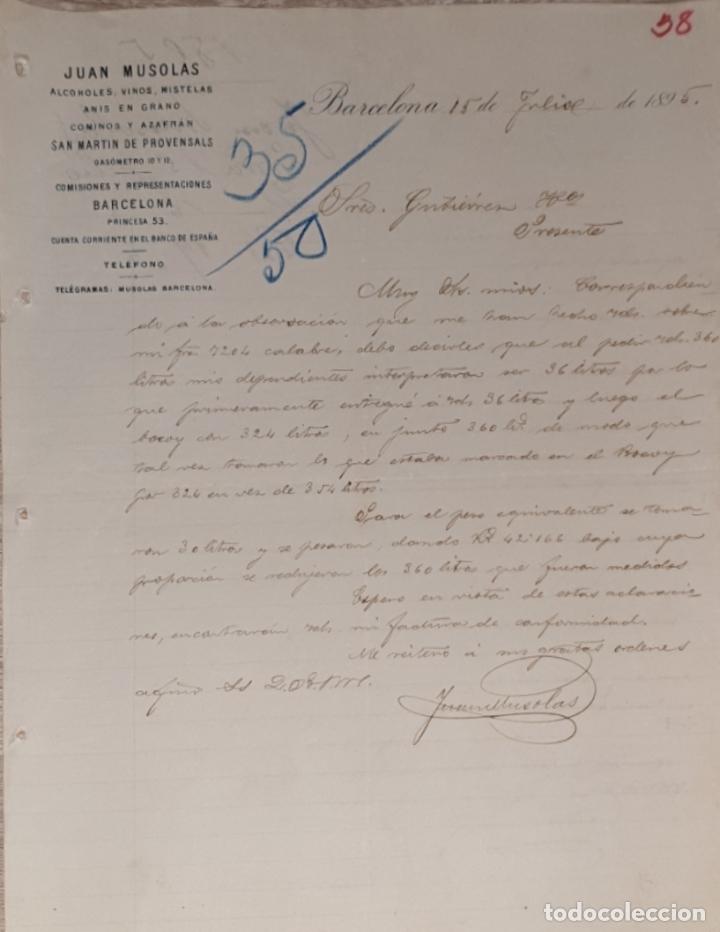 58
JUAN MUSOLAS
ALCOHOLES, VINOS, MISTELAS
ANIS EN GRANO
COMINOS Y AZAFRÁN
SAN MARTIN DE PROVENSALS
GASÓMETRO 10 Y 12.
COMISIONES Y REPRESENTACIONES
BARCELONA
PRINCESA 53.
CUENTA CORRIENTE EN EL BANCO DE ESPAÑA
TELÉFONO
TELÉGRAMAS: MUSOLAS BARCELONA.
35/50
Barcelona 15 de Julio de 1895.
Sres. Gutiérrez Hos
Presente
Muy Srs. mios: Correspondien
do á la observación que me han hecho Vds. sobre
mi fra 7204 calabre, debo decirles que al pedir Vds. 360
litros mis dependientes interpretaron ser 36 litros por lo
que primeramente entregué á Vds 36 litros y luego el
bocoy con 324 litros, en junto 360 lts. de modo que
tal vez tomaron lo que estaba marcado en el Bocoy
por 324 en vez de 354 litros.
Para el peso equivalente se toma-
ron 30 litros y se pesaron, dando Ks 42'166 bajo cuya
proporción se redujeron los 360 litros que fueron medidos
Espero en vista de estas aclaracio-
nes, encontrarán Vds. mi factura de conformidad.
Me reitero á sus gratas ordenes
afmo Ss Q.B.S.M.
Juan Musolas
todocoleccion
todocoleccion.net